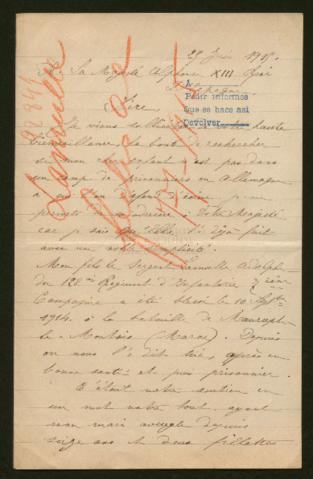 29 Juin 1915.
A Sa Majesté Alphonse XIII Roi
d'Espagne
Pedir informes
que se hace así
Devolver
Sire
Je viens solliciter de votre haute
bienveillance la bonté de rechercher
si mon cher enfant n'est pas dans
un camp de prisonniers en Allemagne
permets de
à Votre Majesté
car je sais que vous l'avez déjà fait
avec un noble
Mon fils le Sergent Lamulle Adolphe
du 122me Régiment d'Infanterie
Compagnie a été blessé le 10 Septbre
1914 à la bataille de Maurupt
le Montois (Marne). Depuis
on nous l'a dit tué, après en
bonne santé et puis prisonnier.
Il était notre soutien en
un mot notre tout, ayant
mon mari aveugle depuis
seize ans et deux fillettes
Lamulle